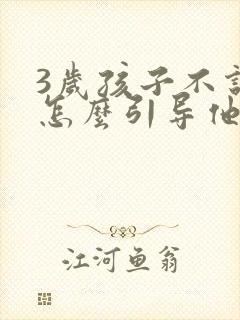 3歲孩子不
怎麼引导他
江河鱼翁